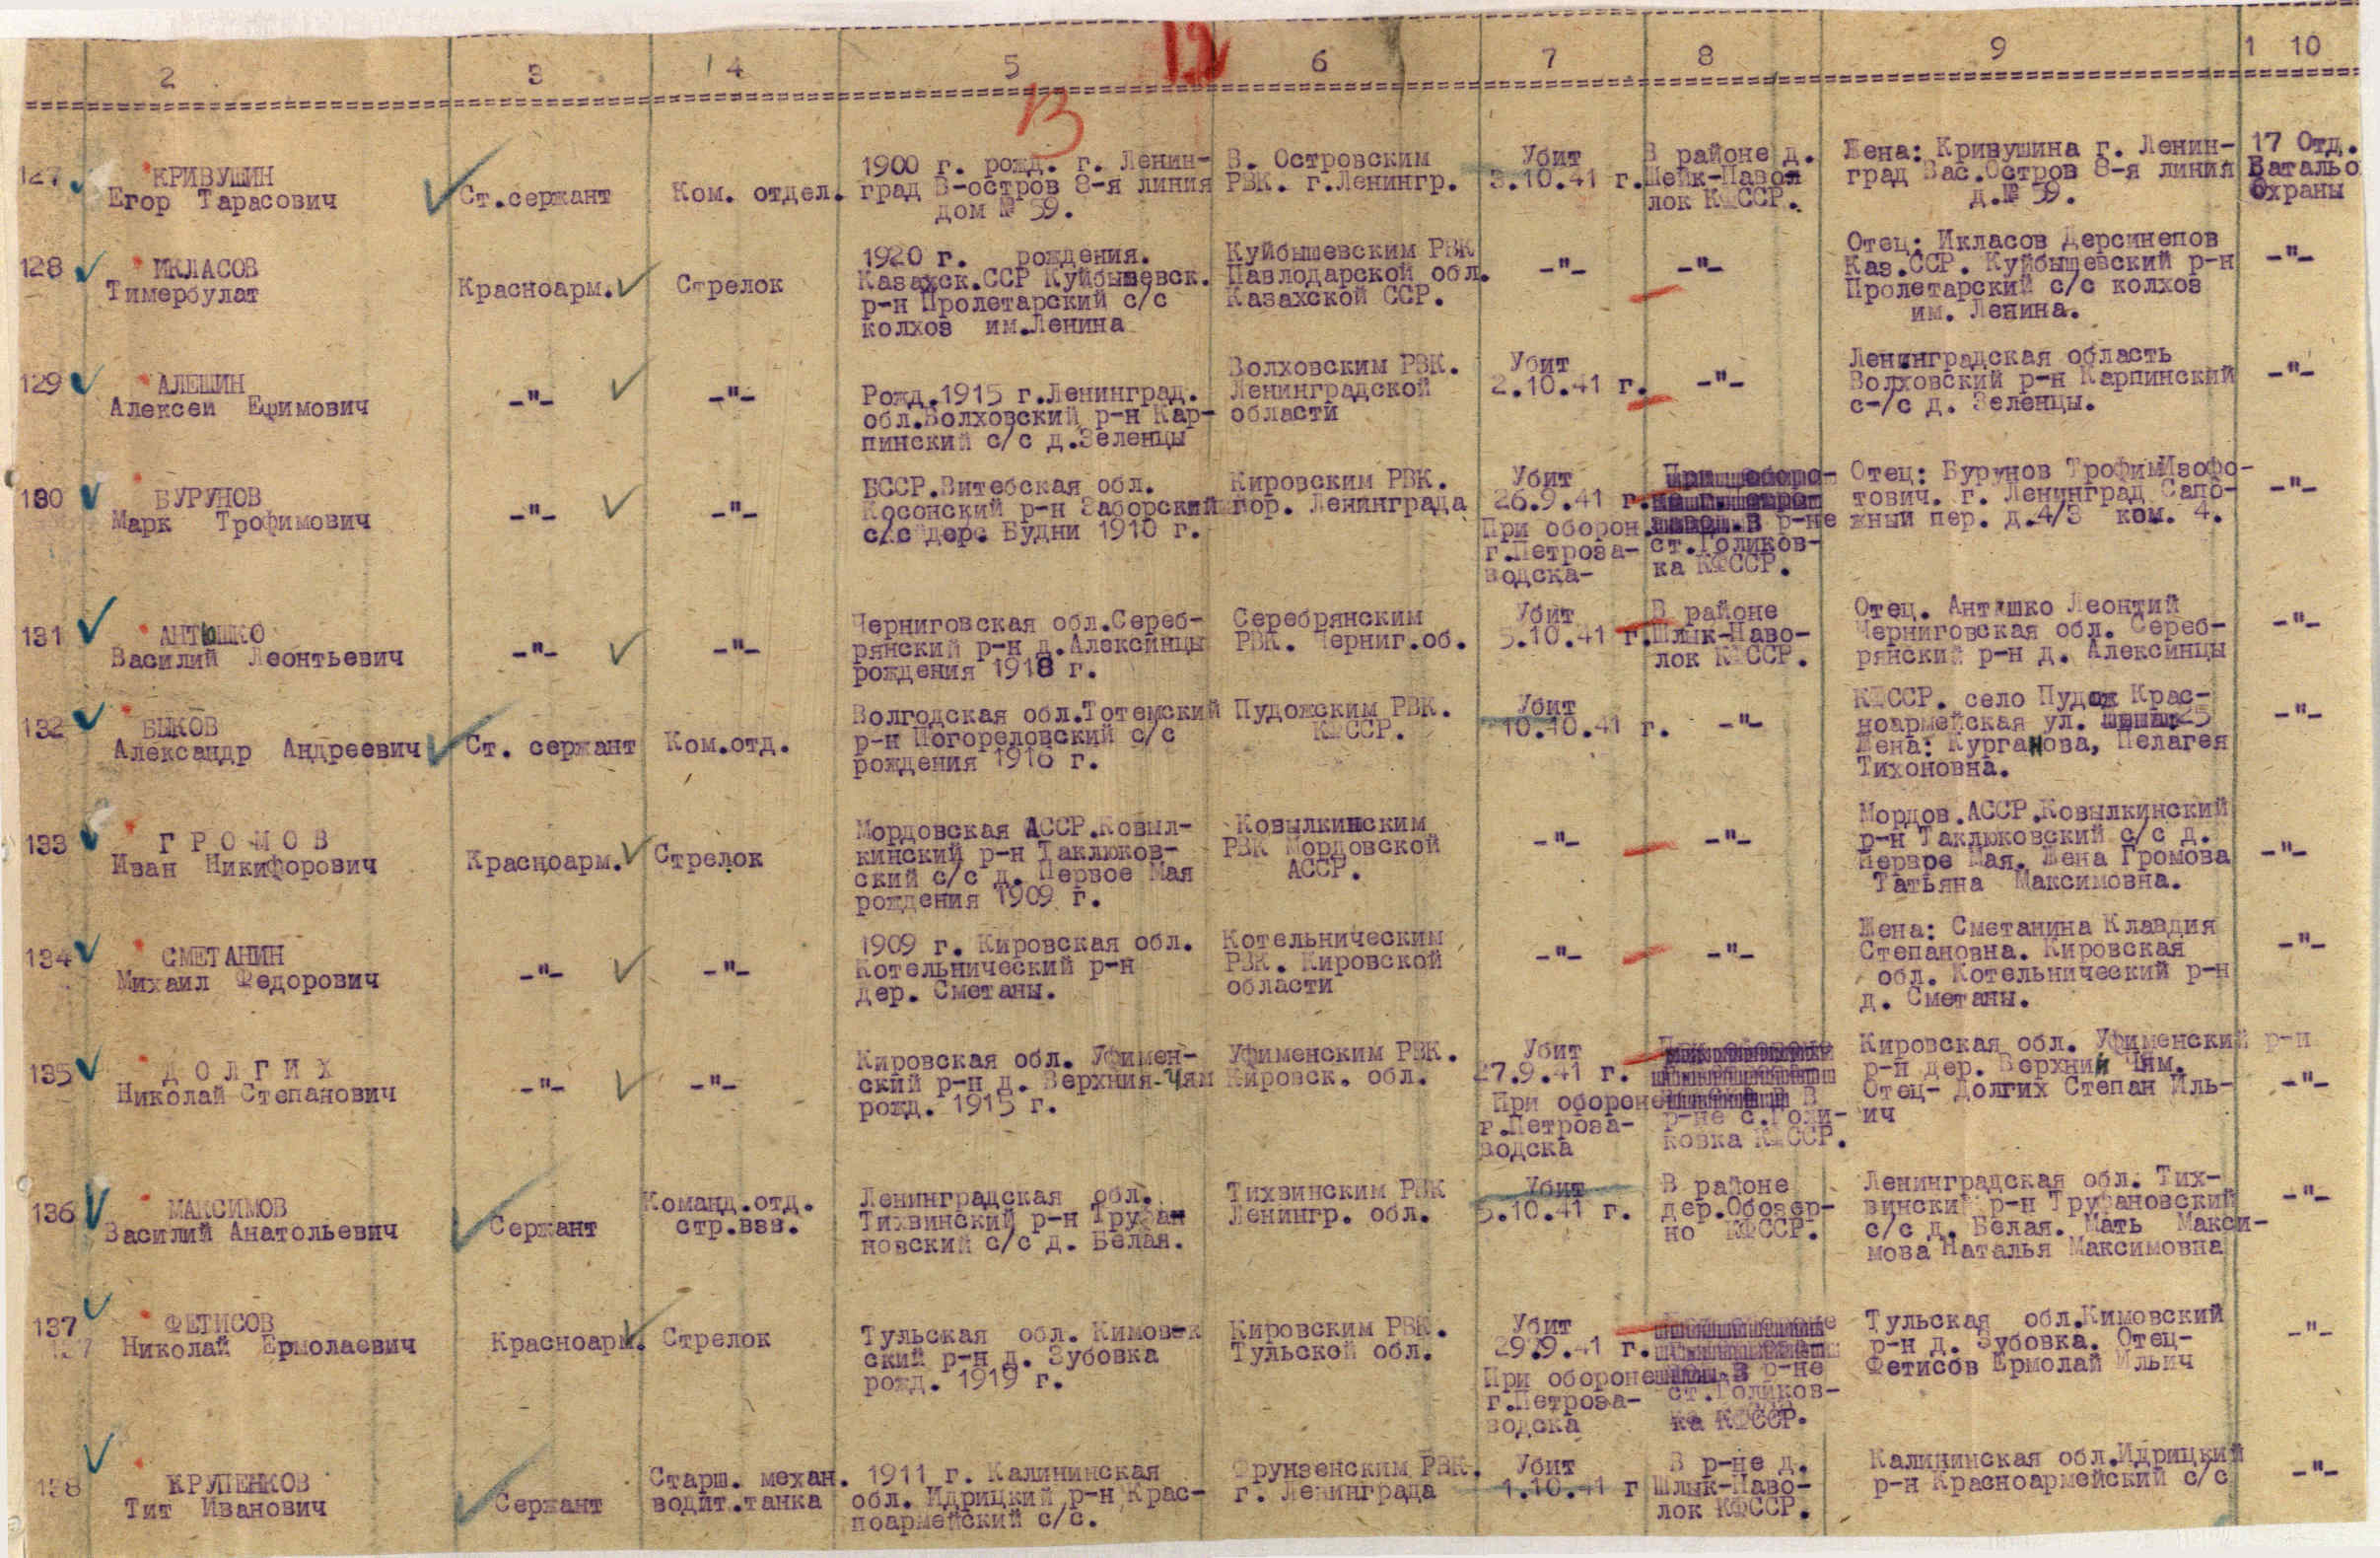 12
2 3 4 5 6 7 8 9 1 10
13
127 КРИВУШИН
Егор Тарасович
Ст.сержант
Ком. отдел.
1900 г. рожд. г. Ленин-
град В-остров 8-я линия
дом № 59.
В. Островским
РВК. г.Ленингр.
Убит
3.10.41 г.
В районе д.
Шейк-Павол
лок КФССР.
Жена: Кривушина г. Ленин-
град Вас.Остров 8-я линия
д.№ 59.
17 Отд.
Батальо
Охраны
128 ИКЛАСОВ
Тимербулат
Красноарм.
Стрелок
1920 г. рождения.
Казахск.ССР Куйбышевск.
р-н Пролетарский с/с
колхоз им.Ленина
Куйбышевским РВК
Павлодарской обл.
Казахской ССР.
-"-
-"-
Отец: Икласов Дерсинепов
Каз.ССР. Куйбышевский р-н
Пролетарский с/с колхоз
им. Ленина.
-"-
129 АЛЕШИН
Алексей Ефимович
-"-
-"-
Рожд.1915 г.Ленинград.
обл.Волховский р-н Кар-
пинский с/с д.Зеленцы
Волховским РВК.
Ленинградской
области
Убит
2.10.41 г.
-"-
Ленинградская область
Волховский р-н Карпинский
с-/с д. Зеленцы.
-"-
130 БУРУНОВ
Марк Трофимович
-"-
-"-
БССР.Витебская обл.
Косонский р-н Заборский
с/с дер. Будни 1910 г.
Кировским РВК.
гор. Ленинграда
Убит
26.9.41 г.
При оборон.
г.Петроза-
водска-
При оборо-
В р-не
ст.Голиков-
ка КФССР.
Отец: Бурунов ТрофимИзофо-
тович. г. Ленинград Сапо-
жный пер. д.4/3 ком. 4.
-"-
131 АНТЮШКО
Василий Леонтьевич
-"-
-"-
Черниговская обл.Сереб-
рянский р-н д.Алексинцы
рождения 1918 г.
Серебрянским
РВК. Черниг.об.
Убит
5.10.41 г.
В районе
Шлык-Наво-
лок КФССР.
Отец. Антюшко Леонтий
Черниговская обл. Сереб-
рянский р-н д. Алексинцы
-"-
132 БЫКОВ
Александр Андреевич
Ст. сержант
Ком.отд.
Волгодская обл.Тотемский
р-н Погореловский с/с
рождения 1916 г.
Пудожским РВК.
КФССР.
Убит
10.10.41 г.
-"-
КФССР. село Пудож Крас-
ноармейская ул. 25
Жена: Курганова, Пелагея
Тихоновна.
-"-
133 ГРОМОВ
Иван Никифорович
Красноарм.
Стрелок
Мордовская АССР.Ковыл-
кинский р-н Таклюков-
ский с/с д. Первое Мая
рождения 1909 г.
Ковылкинским
РВК Мордовской
АССР.
-"-
-"-
Мордов.АССР.Ковылкинский
р-н Таклюковский с/с д.
Первое Мая. Жена Громова
Татьяна Максимовна.
-"-
134 СМЕТАНИН
Михаил Федорович
-"-
-"-
1909 г. Кировская обл.
Котельнический р-н
дер. Сметаны.
Котельническим
РВК. Кировской
области
-"-
-"-
Жена: Сметанина Клавдия
Степановна. Кировская
обл. Котельнический р-н
д. Сметаны.
-"-
135 ДОЛГИХ
Николай Степанович
-"-
-"-
Кировская обл. Уфимен-
ский р-н д. Верхния-Чям
рожд. 1915 г.
Уфименским РВК.
Кировск. обл.
Убит
27.9.41 г.
При обороне
г.Петроза-
водска
При обороне
В
р-не с.Голи-
ковка КФССР.
Кировская обл. Уфименский р-н
р-н дер. Верхний Чям.
Отец- Долгих Степан Иль-
ич
-"-
136 МАКСИМОВ
Василий Анатольевич
Сержант
Команд.отд.
стр.взв.
Ленинградская обл.
Тихвинский р-н Труфан
новский с/с д. Белая.
Тихвинским РВК
Ленингр. обл.
Убит
5.10.41 г.
В районе
дер.Обозер-
но КФССР.
Ленинградская обл. Тих-
винский р-н Труфановский
с/с д. Белая. Мать Макси-
мова Наталья Максимовна
-"-
137 ФЕТИСОВ
137 Николай Ермолаевич
Красноарм.
Стрелок
Тульская обл. Кимовск
ский р-н д. Зубовка
рожд. 1919 г.
Кировским РВК.
Тульской обл.
Убит
29.9.41 г.
При обороне
г.Петроза-
водска
В р-не
ст.Голиков-
ка КФССР.
Тульская обл.Кимовский
р-н д. Зубовка. Отец-
Фетисов Ермолай Ильич
-"-
138 КРУПЕНКОВ
Тит Иванович
Сержант
Старш. механ.
водит.танка
1911 г. Калининская
обл. Идрицкий р-н Крас-
ноармейский с/с.
Фрунзенским РВК.
г. Ленинграда
Убит
1.10.41 г
В р-не д.
Шлык-Наво-
лок КФССР.
Калининская обл.Идрицкий
р-н Красноармейский с/с
-"-